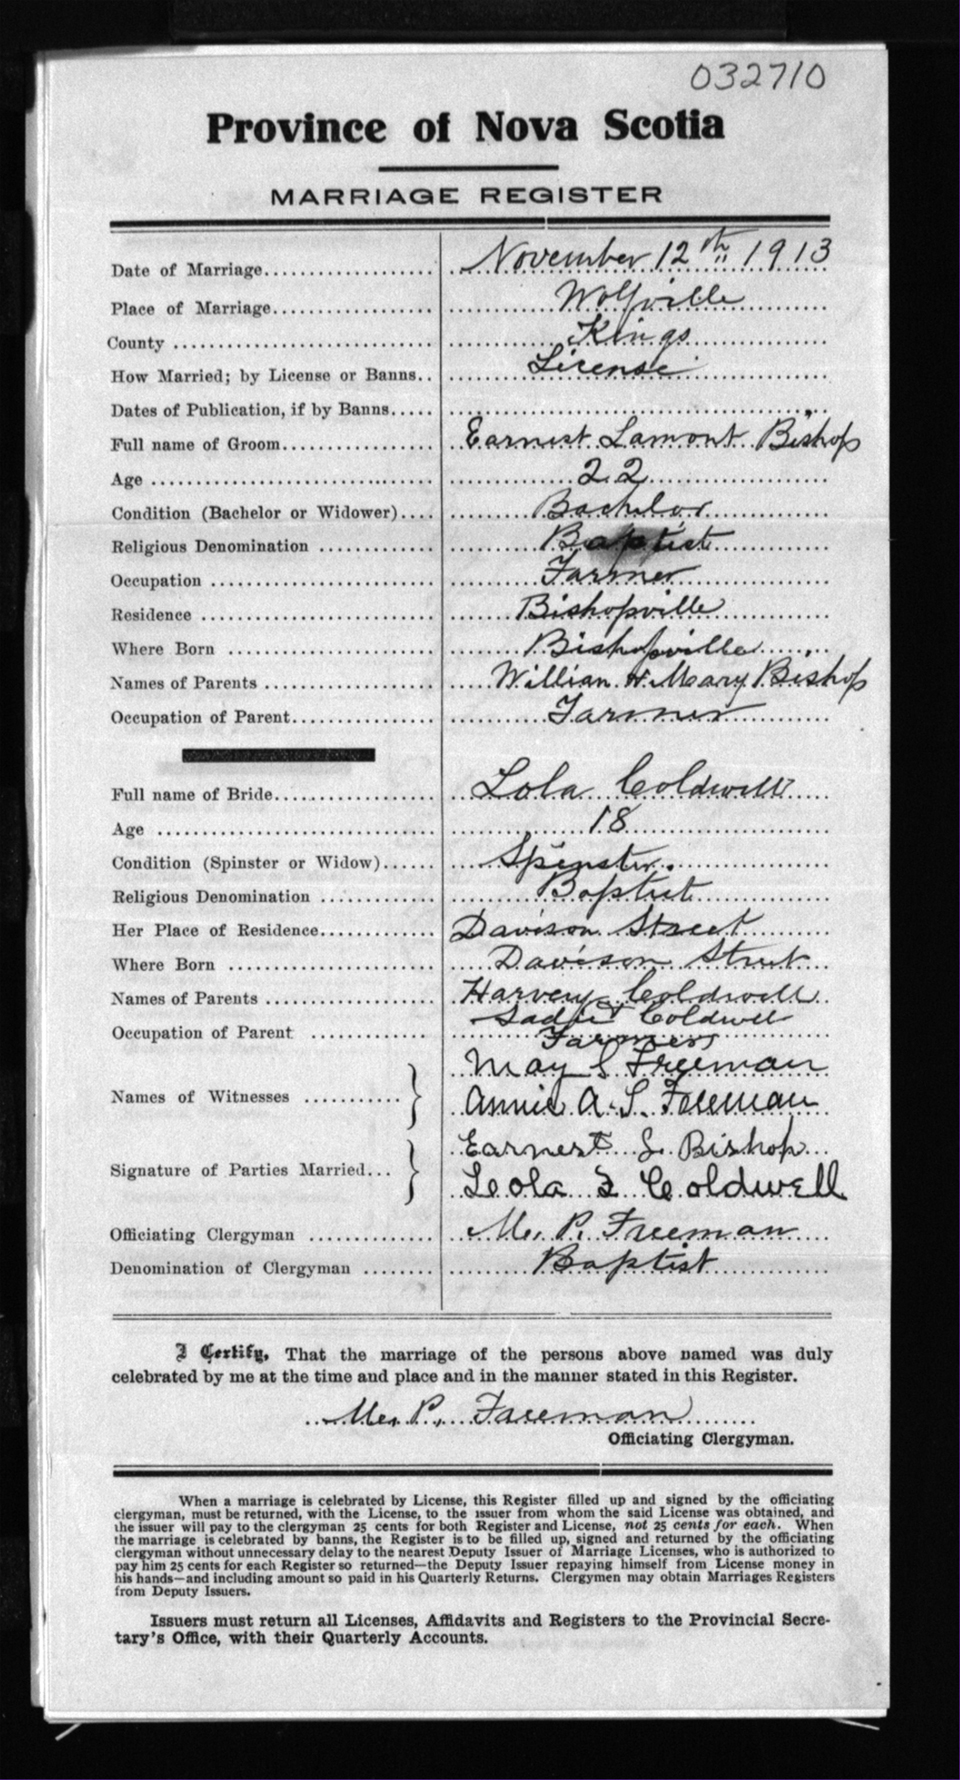 032710
Province of Nova Scotia
MARRIAGE REGISTER
Date of Marriage.................... November 12th 1913
Place of Marriage................... Wolfville
County ............................. Kings
How Married; by License or Banns.. License
Dates of Publication, if by Banns.....
Full name of Groom.................. Earnest Lamont Bishop
Age ................................ 22
Condition (Bachelor or Widower).... Bachelor
Religious Denomination ............. Baptist
Occupation ......................... Farmer
Residence .......................... Bishopville
Where Born ......................... Bishopville
Names of Parents ................... William H. Mary Bishop
Occupation of Parent................ Farmer
Full name of Bride.................. Lola Coldwell
Age ................................ 18
Condition (Spinster or Widow)...... Spinster.
Religious Denomination ............. Baptist
Her Place of Residence............. Davison Street
Where Born ......................... Davison Street
Names of Parents ................... Harvey Coldwell
Sadie Coldwell
Occupation of Parent ............... Farmers
May S Freeman
Names of Witnesses ........... } Annie A. S. Freeman
Earnest L. Bishop
Signature of Parties Married... } Leola I Coldwell
Officiating Clergyman .............. M. P. Freeman
Denomination of Clergyman ........ Baptist
I Certify, That the marriage of the persons above named was duly
celebrated by me at the time and place and in the manner stated in this Register.
M. P. Freeman
Officiating Clergyman.
When a marriage is celebrated by License, this Register filled up and signed by the officiating
clergyman, must be returned, with the License, to the issuer from whom the said License was obtained, and
the issuer will pay to the clergyman 25 cents for both Register and License, not 25 cents for each. When
the marriage is celebrated by banns, the Register is to be filled up, signed and returned by the officiating
clergyman without unnecessary delay to the nearest Deputy Issuer of Marriage Licenses, who is authorized to
pay him 25 cents for each Register so returned—the Deputy Issuer repaying himself from License money in
his hands—and including amount so paid in his Quarterly Returns. Clergymen may obtain Marriages Registers
from Deputy Issuers.
Issuers must return all Licenses, Affidavits and Registers to the Provincial Secre-
tary's Office, with their Quarterly Accounts.